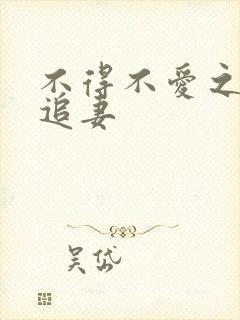 不得不爱之
追妻
吴岱